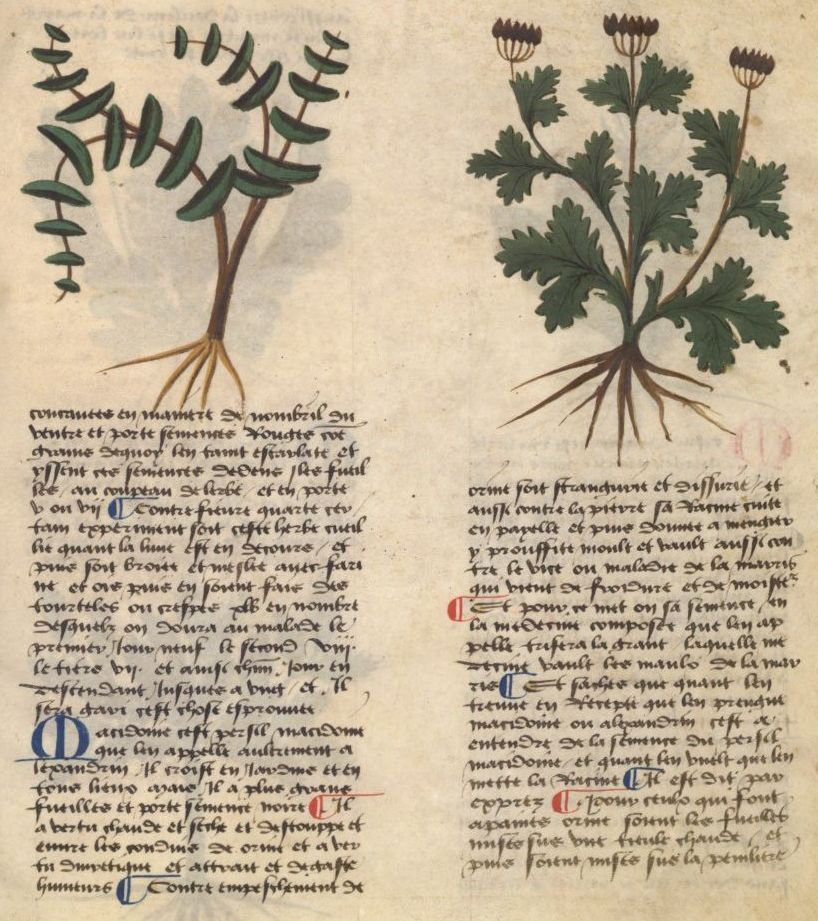 contraitees en maniere de nombril du
ventre et porte semences Rouges cõe
grains dequoy len taint escarlate et
yssent ces semences dedens les fueil
les / au coupeau de lerbe / et en porte
v ou vii Contre fieure quarte cer
tain experiment soit ceste herbe cueil
lie quant la lune est en decours / et
puis soit broiee et meslee auec fari
ne et oes puis en soient fais des
tourteles ou crespes xlv en nombre
desquelz on doura au malade le
premier Jour neuf le second viii.
le tiers vii. et ainsi chũn Jour en
descendant Jusques a vng / et Il
sera gari cest chose esprouuee
Macidoine cest persil macidoine
que len appelle aultrement a
lexandrin Il croist en Jardins et en
tous lieux Il a plus grans
fueilles et porte semence noire Il
a vertu chaude et seche et destouppe et
euure les conduis de orine et a ver
tu diuretique et attrait et degaste
humeurs Contre empeschement de
orine soit stranguire et dissurie / et
aussi contre la pierre sa Racine cuite
en paelle et puis donnee a mengier
y prouffite moult et vault aussi con
tre le vice ou maladie de la marris
qui vient de froidure et de moisteᵉ
Et pour ce met on sa semence / en
la medecine composee que len ap
pelle trifera la grant laquelle me
decine vault les maulx de la mar
ris Et saches que quant len
treuue en Recepte que len prengne
macidoine ou alexandrin cest a
entendre de la semence du persil
macidoine / et quant len vuelt que len
mette la Racine Il est dit par
exprez Pour ceulx qui font
a paines orine soient les fueilles
mises sus vne tieule chaude / et
puis soient mises sus la penilliere